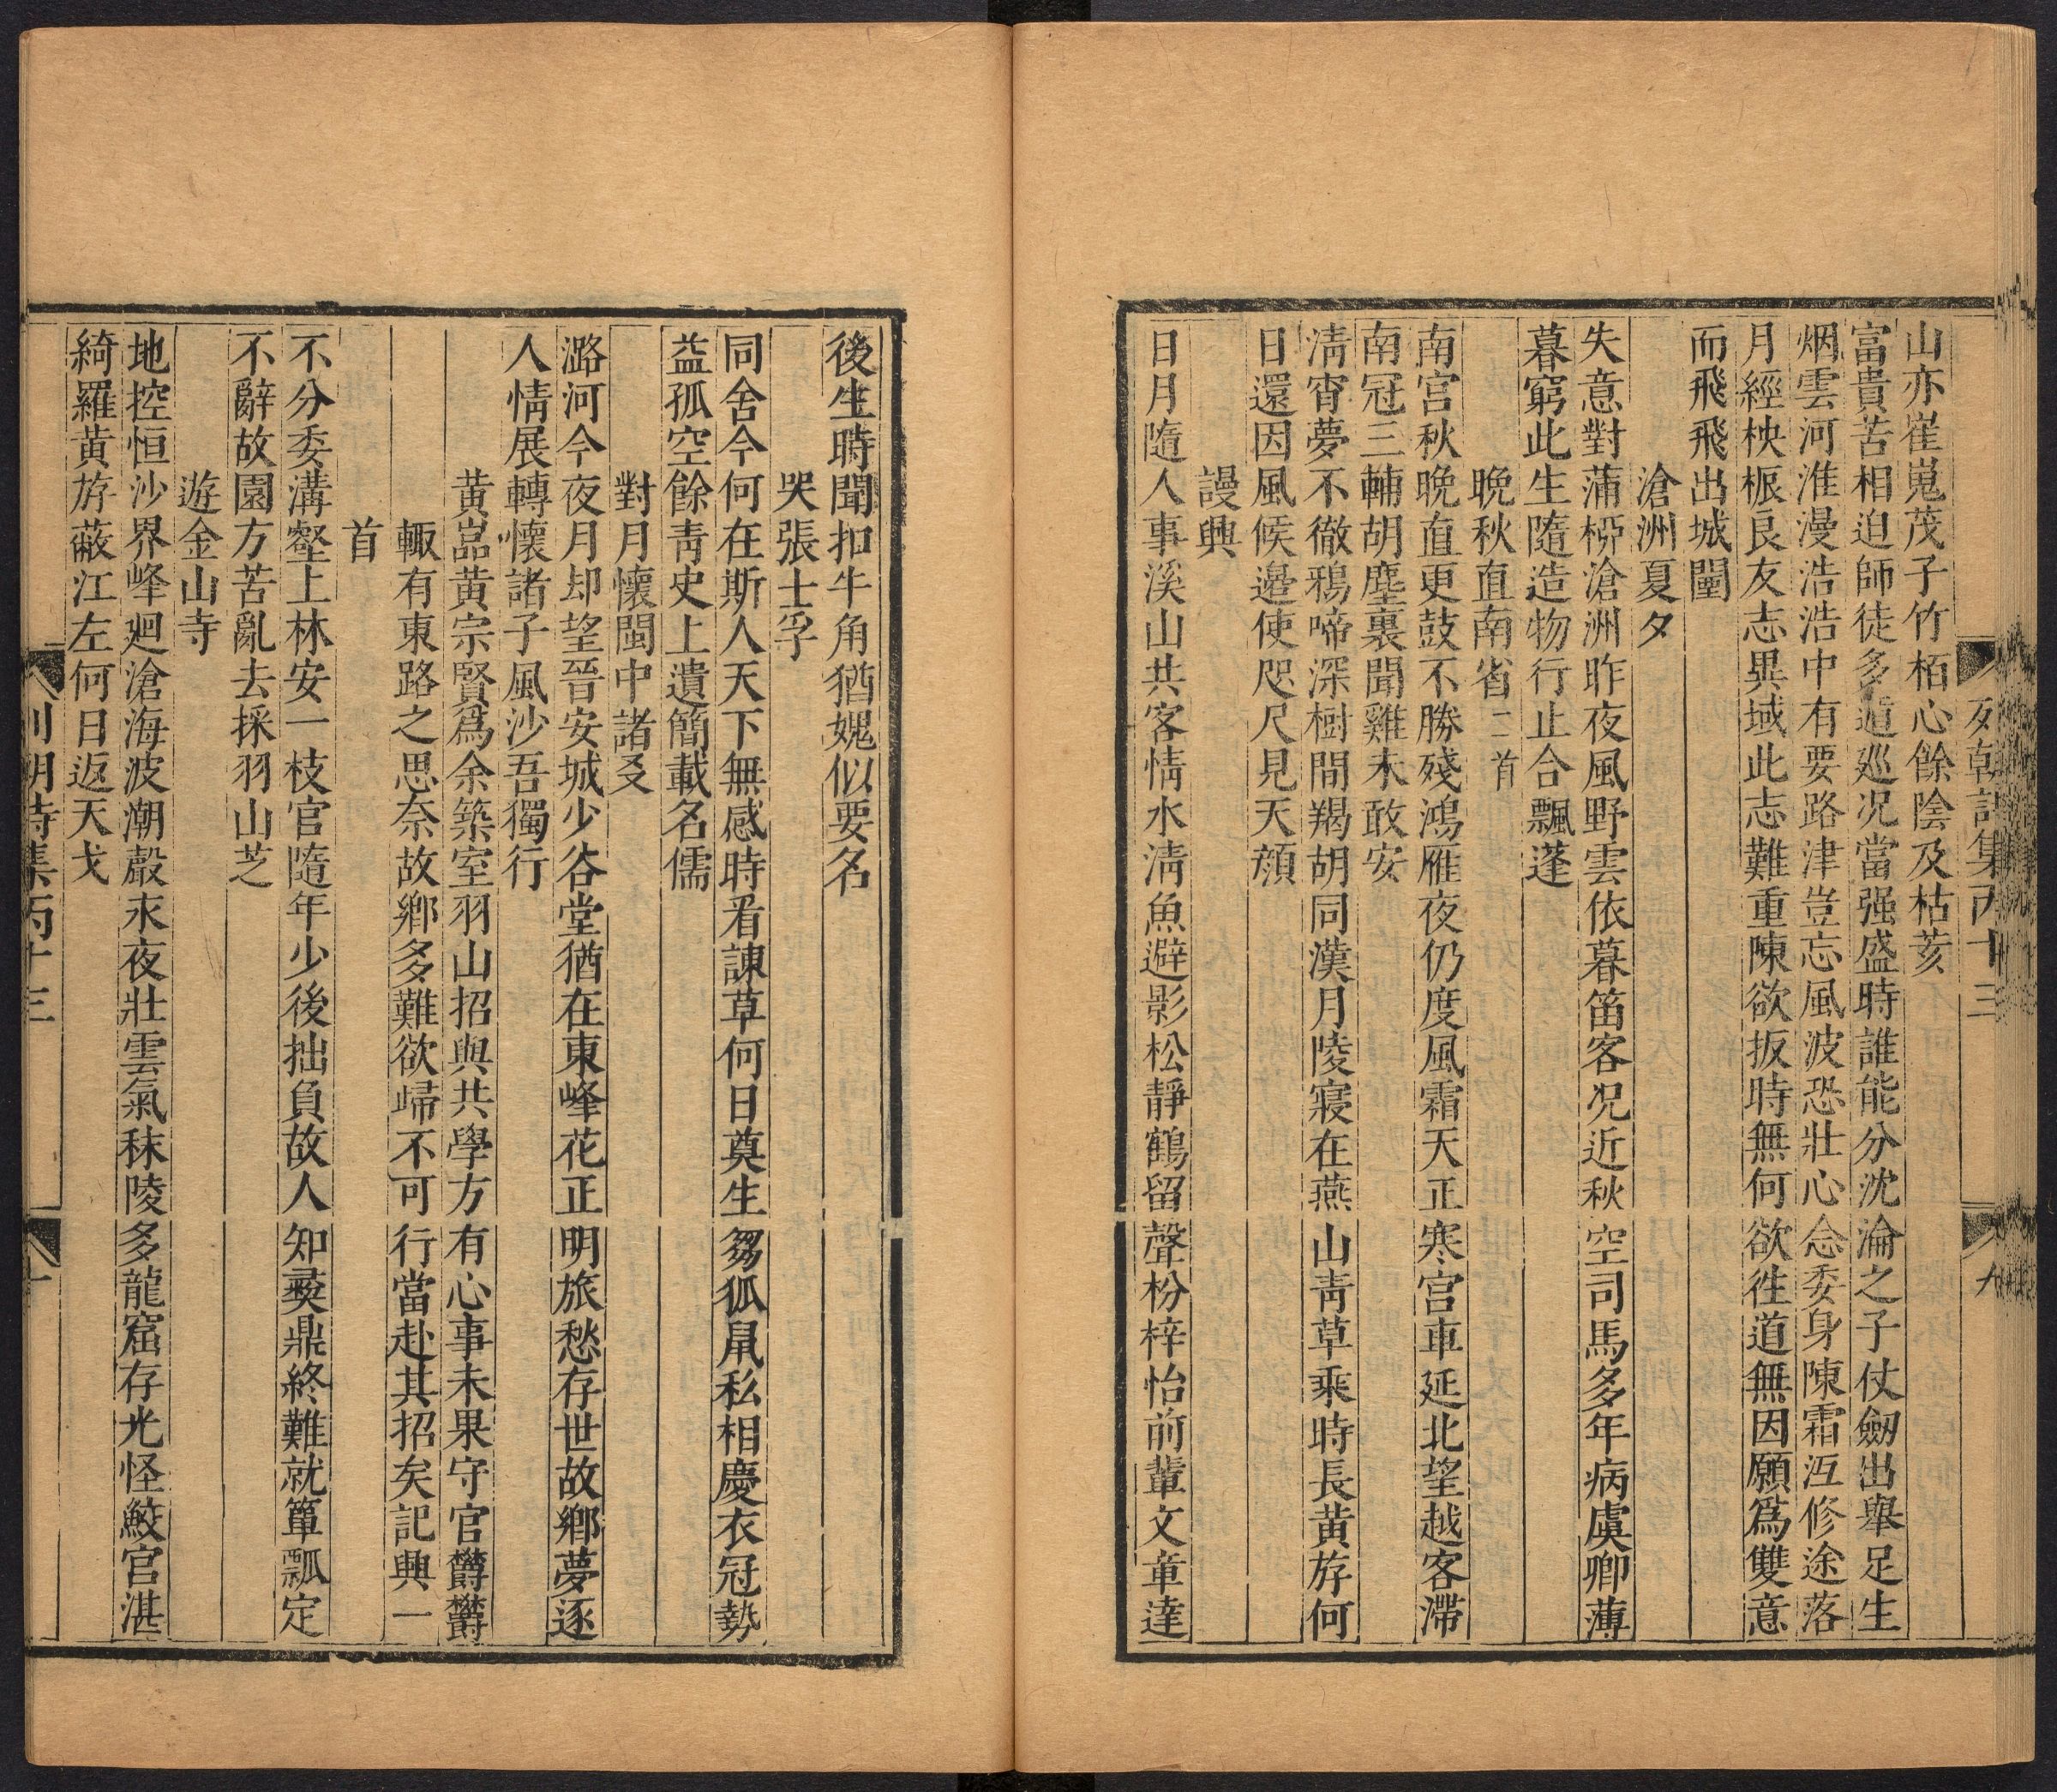 列朝詩集丙十三
九
山亦崔嵬茂子竹栢心餘陰及枯荄
富貴苦相迫師徒多逎廵况當强盛時誰能分沈淪之子仗劒出舉足生
烟雲河淮漫浩浩中有要路津豈忘風波恐壯心念委身陳霜沍修途落
月經柍桭良友志異域此志難重陳欲扳時無何欲徃道無因願爲雙意
而飛飛出城闉
滄洲夏夕
失意對蒲桞滄洲昨夜風野雲依暮笛客况近秋空司馬多年病虞卿薄
暮窮此生隨造物行止合飄蓬
晚秋直南省二首
南宮秋晚直更鼓不勝殘鴻雁夜仍度風霜天正寒宮車延北望越客滯
南冠三輔胡塵裏聞雞未敢安
淸宵夢不徹鴉啼深樹間羯胡同漢月陵寢在燕山靑草乘時長黃斿何
日還因風候邉使咫尺見天顔
謾興
日月隨人事溪山共客情水淸魚避影松靜鶴留聲枌梓怡前輩文章達
後生時聞扣牛角猶媿似要名
哭張士孚
同舍今何在斯人天下無感時看諫草何日奠生芻狐鼠私相慶衣冠勢
益孤空餘靑史上遺簡載名儒
對月懷閩中諸叐
潞河今夜月却望晉安城少谷堂猶在東峰花正明旅愁存世故鄉夢逐
人情展轉懷諸子風沙吾獨行
黃嵓黃宗賢爲余築室羽山招與共學方有心事未果守官欝欝
輙有東路之思奈故鄉多難欲歸不可行當赴其招矣記興一
首
不分委溝壑上林安一枝官隨年少後拙負故人知彛鼎終難就簞瓢定
不辭故園方苦亂去採羽山芝
遊金山寺
地控恒沙界峰廻滄海波潮殸永夜壯雲氣秣陵多龍窟存光怪鮫宮湛
綺羅黃斿蔽江左何日返天戈
列朝詩集丙十三
十